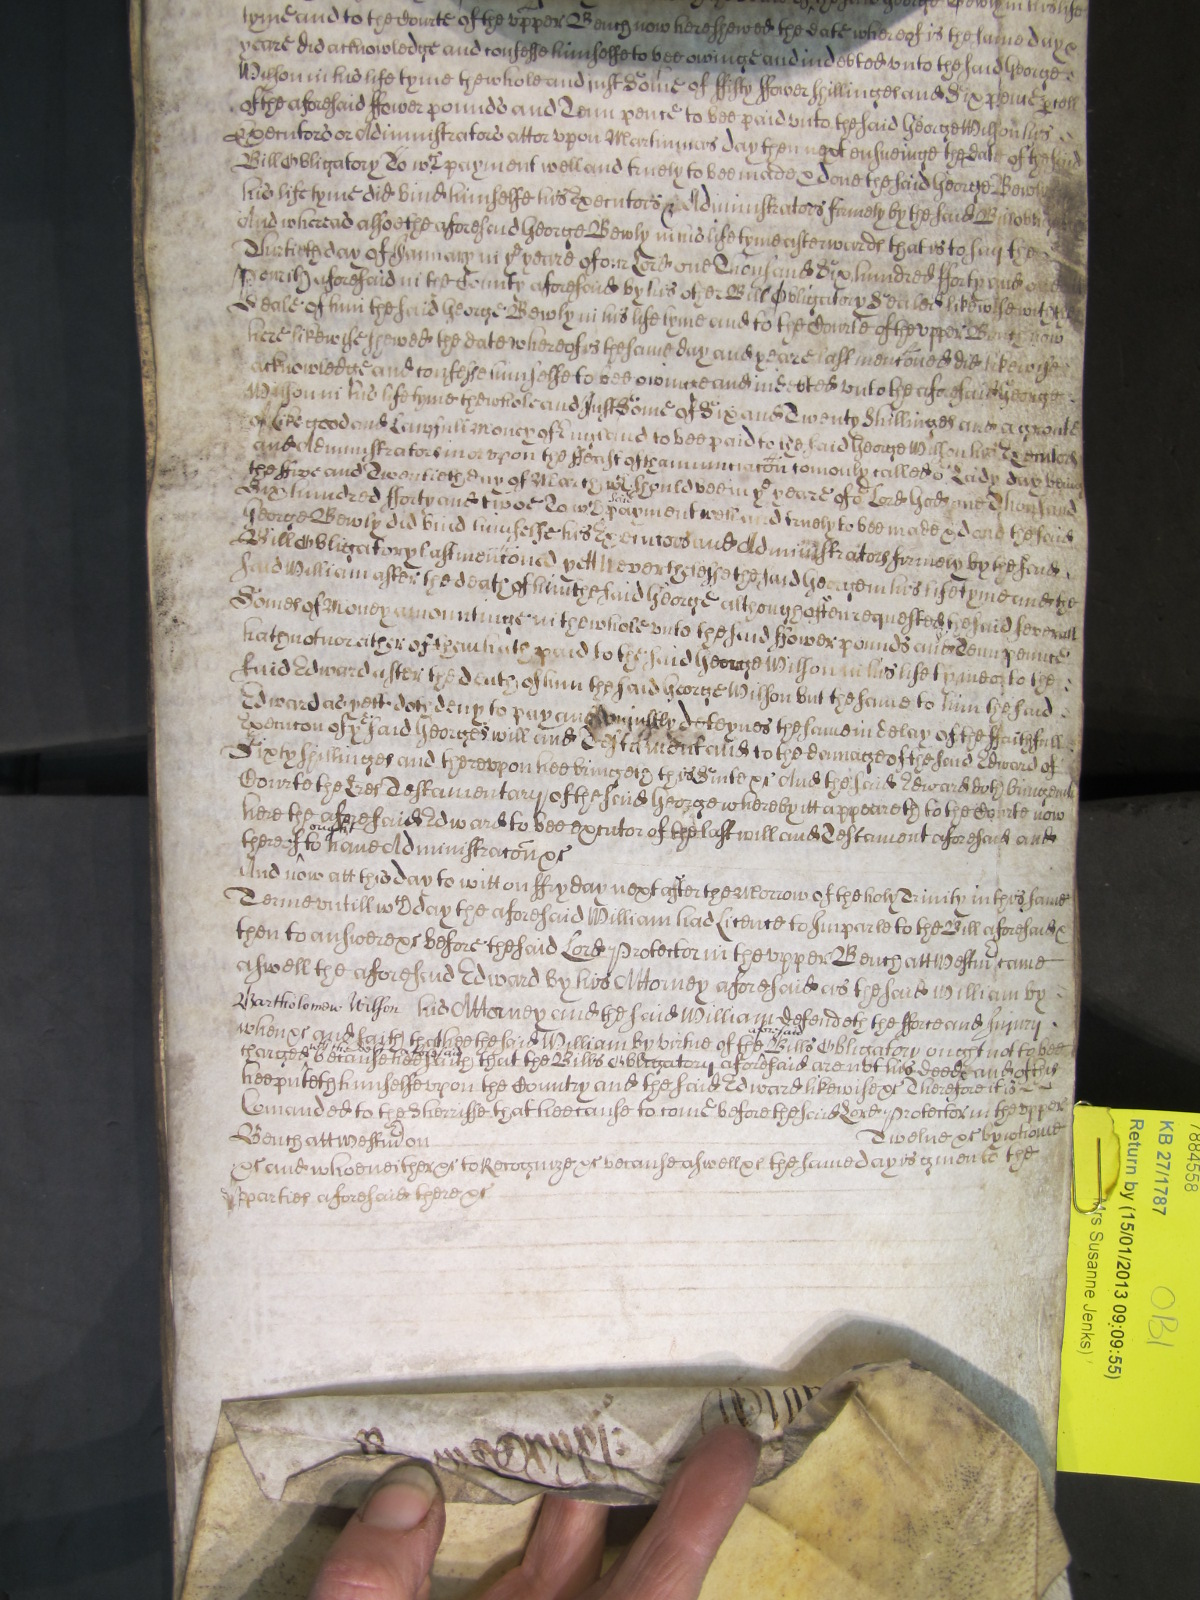 tyme and to the Courte of the vpper Bench now here shewed the date whereof is the same day &
yeare did acknowledge and confesse himselfe to bee owinge and indebted vnto the said George
Wilson in his life tyme the whole and just Some of ffifty ffower shillinges and Six pence pcell
of the aforesaid ffower pounds and Tenn pence to bee paid vnto the said George Wilson his
Executors or Administrators att or vpon Martinmas day then next ensueinge the date of the said
Bill Obligatory To wch payment well and truely to bee made & done the said George Bewly
his life tyme did bind himselfe his Executors & Administrators firmely by the said Bill
And whereas alsoe the aforesaid George Bewly in his life tyme afterwards that is to say the
Thirtieth day of January in ye yeare of our Lord one Thousand Six hundred fforty and one
Penrith aforesaid in the County aforesaid by his other Bill Obligatory Sealed likewise with the
Seale of him the said George Bewly in his life tyme and to the Courte of the vpper Bench now
here likewise shewed the date whereof is the same day and yeare last mentioned did likewise
acknowledge and confesse himselfe to bee owinge and indebted vnto the aforesaid George
Wilson in his life tyme the whole and Just Some of Six and Twenty Shillinges and a groate
of like good and Lawfull money of England to bee paid to the said George Wilson his Executors
and Administrators in or vpon the ffeast of thanunciacon comonly called or Lady day being
the ffive and Twentieth day of March wch should bee in ye yeare of or Lord God one Thousand
Six hundred fforty and twoe To wch payment well and truely to bee made & done the said
George Bewly did bind himselfe his Executors and Administrators firmely by the said
Bill Obligatory last mencioned yett Neverthelesse the said George in his life tyme and the
said William after the death of him the said George although often requested the said severall
Somes of Money amountinge in the whole vnto the said ffower pounds and Tenn pence
hath not nor either of them hath paid to the said George Wilson in his life tyme or to the
said Edward after the death of him the said George Wilson but the same to him the said
Edward as yett doth deny to pay and vniustly deteynes the same in delay of the ffaithfull
Execucon of ye said Georges will and Testament and to the damage of the said Edward of
Sixty shillinges and therevpon hee bringeth this Suite &c And the said Edward doth bring into
Courte the Lres Testamentary of the said George whereby itt appeareth to the Courte now
here the aforesaid Edward to bee executor of the last will and Testament aforesaid and
thereof to ought haue Administracon &c
And now att this day to witt on ffryday next after the Morrow of the holy Trinity in this same
Terme vntill wch day the aforesaid William had Licence to Imparle to the Bill aforesaid &
then to answere &c before the said Lord Protector in the vpper Bench att Westmr came
aswell the aforesaid Edward by his Attorney aforesaid as the said William by
Bartholomew Wilson his Attorney and the said William defendeth the fforce and Injury
when &c and saith that hee the said William by virtue of the aforesaid Bills Obligatory ought not to bee
charged because hee saith that the Bills Obligatory aforesaid are not his deeds and of this
hee putteth himselfe vpon the Country and the said Edward likewise &c Therefore itt is
Comanded to the Sherriffe that hee cause to come before the said Lord Protector in the vpper
Bench att Westmr on Twelue &c by whome
&c and whoe neither &c to Recognize &c because aswell &c the same day is given to the
parties aforesaid there &c
7884558
KB 27/1787
Return by (15/01/2013 09:09:55)
Mrs Susanne Jenks)
OBI